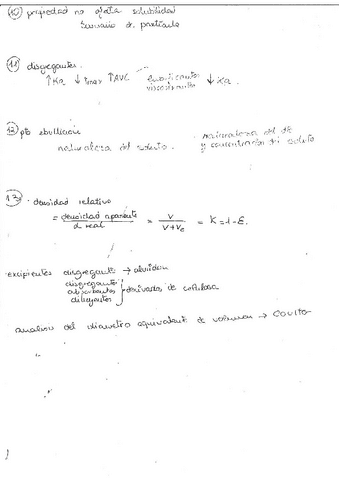 10) propiedad no afecta solubilidad
tamaño de partícula
11) disgregantes.
↑ Ka ↓ tmax ↑ AUC ↓ Ka.
12) pto ebullición
naturaleza del soluto. naturaleza del dte
y concentración del soluto
13) · densidad relativa
= densidad aparente / d real = V / V+Ve = K = 1-E.
·excipientes disgregante → almidon
disgregantes
absorbentes } derivados de celulosa
diluyentes
analisis del diametro equivalente de volumen → COULTER